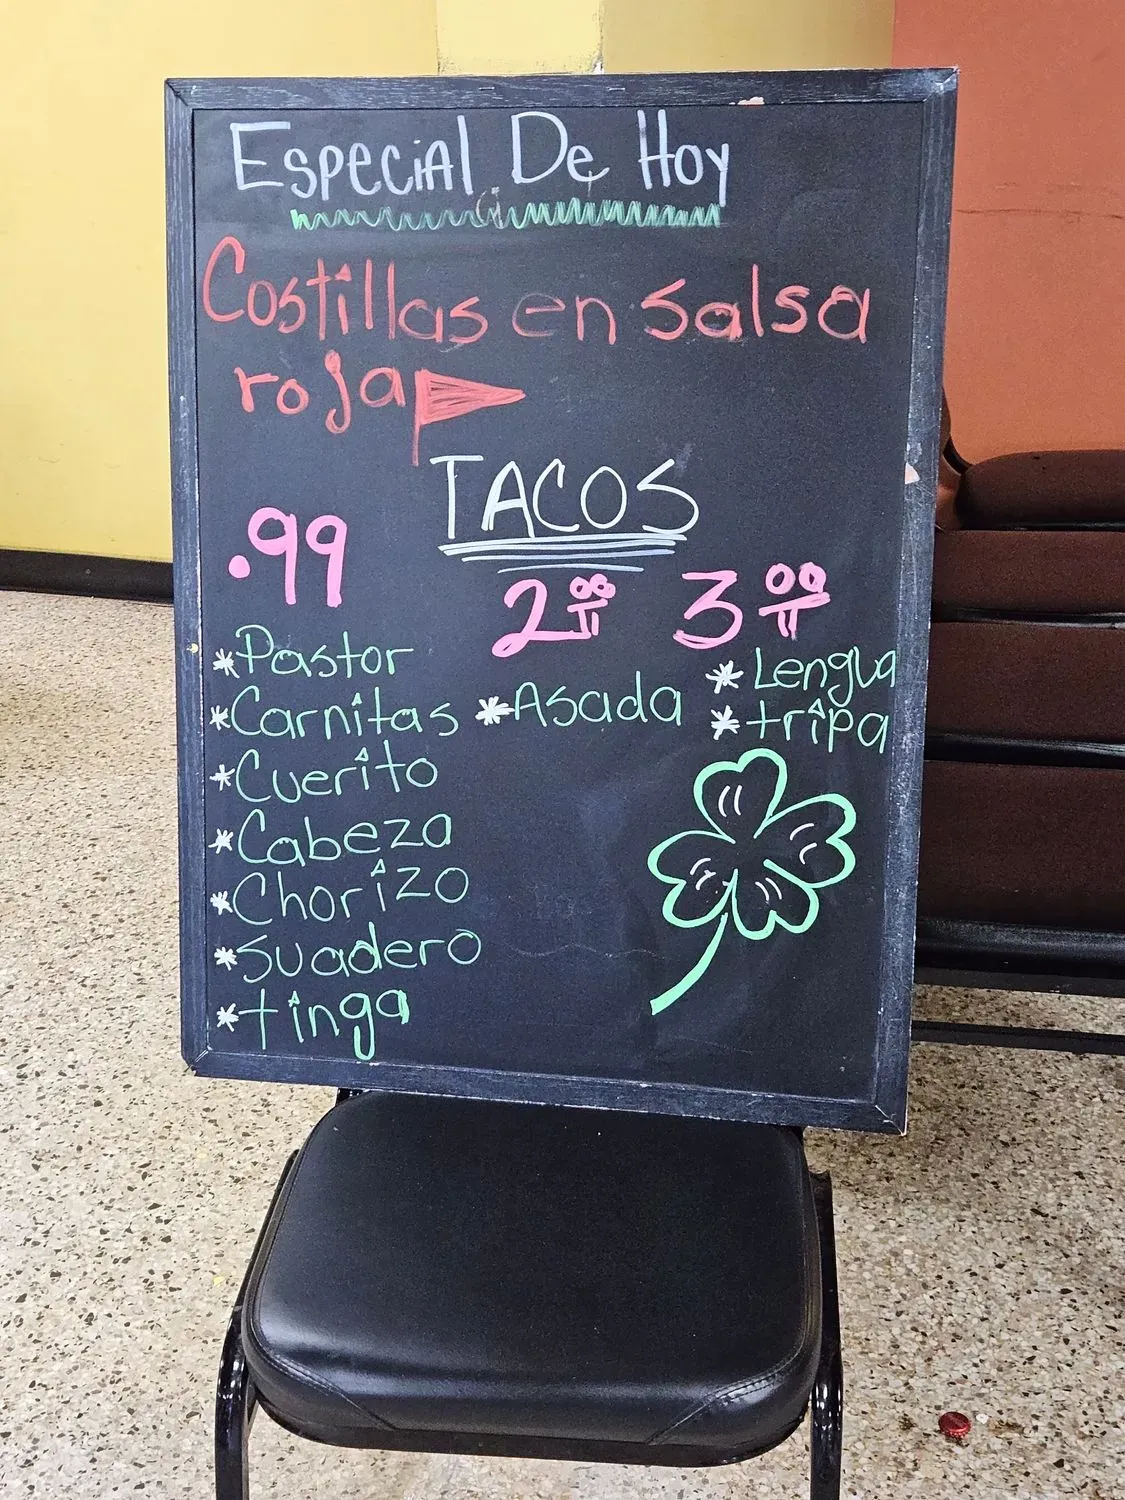 Especial De Hoy
Costillas en salsa
roja
TACOS
.99
2.00 3.00
*Pastor
*Carnitas
*Cuerito
*Cabeza
*Chorizo
*suadero
*tinga
*Asada
*Lengua
*tripa